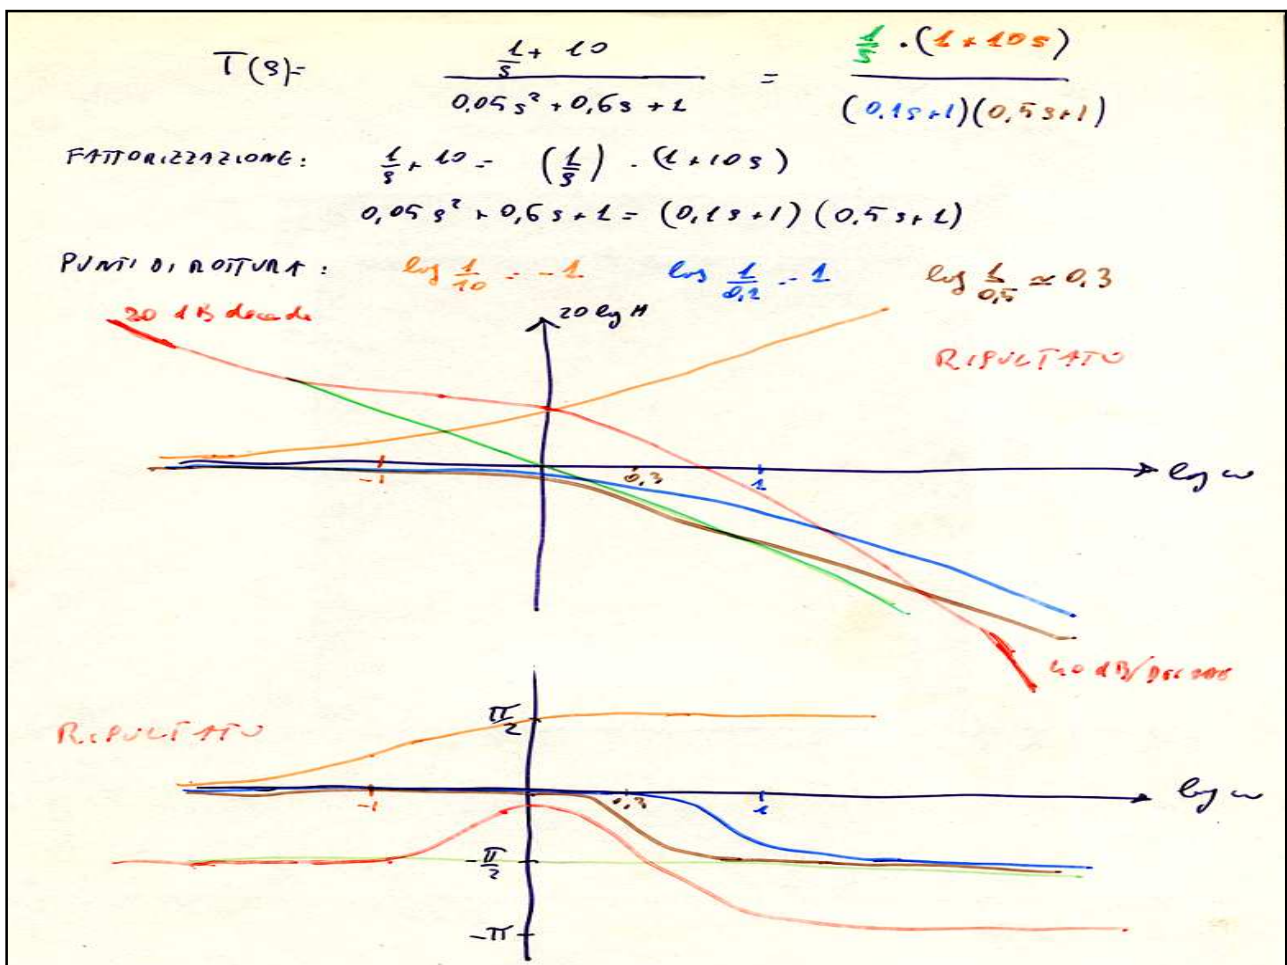 T(s)= (1/s + 10)/(0,05s² + 0,6s + 1) = (1/s · (1 + 10s))/((0,1s+1)(0,5s+1))
FATTORIZZAZIONE: 1/s + 10 = (1/s) · (1+10s)
0,05s² + 0,6s + 1 = (0,1s+1)(0,5s+1)
PUNTI DI ROTTURA: log 1/10 = -1 log 1/0,1 = 1 log 1/0,5 ≃ 0,3
20 dB decade
20 log H
RISULTATO
-1 0,3 1 log ω
40 dB/DECADE
RISULTATO
π/2
-1 0,3 1 log ω
-π/2
-π